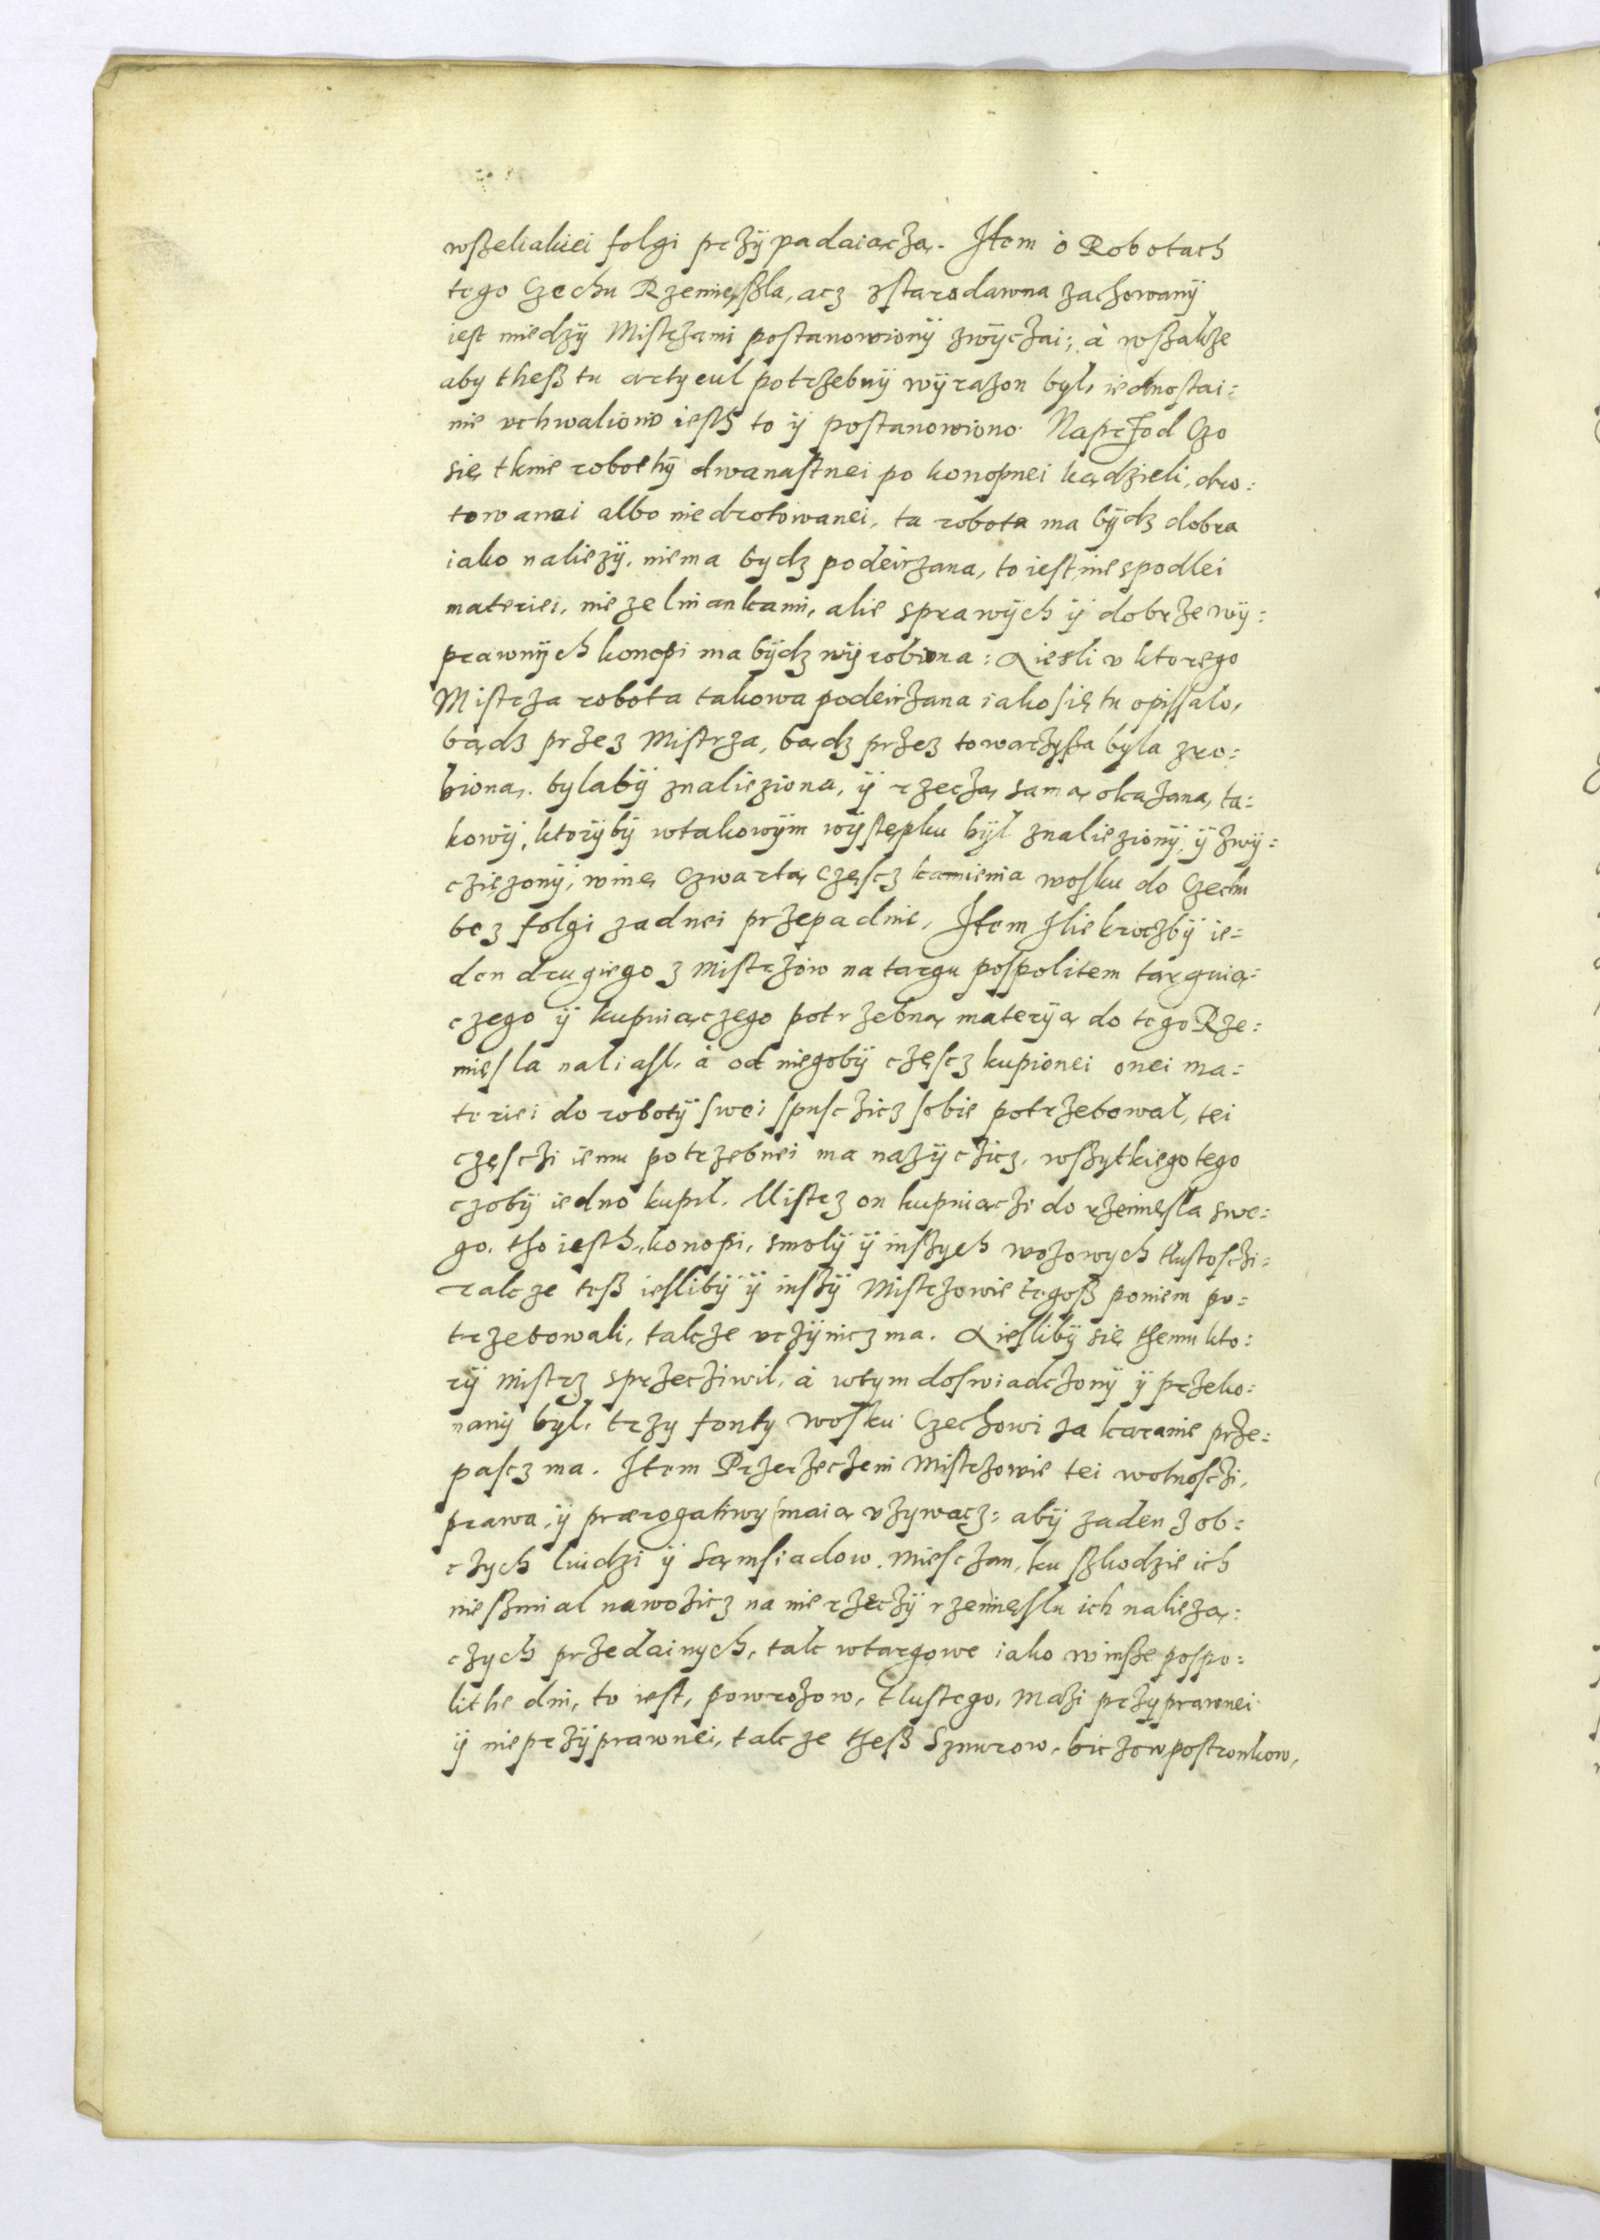 wszeliakiei folgi przÿpadaiącza. Item ò Robotach
tego Czechu Rzemięszla, acz zstarodawna zachowanÿ
iest miedzÿ Mistrzami postanowionÿ zwÿczai; à wszakże
aby thesz tu artycul potrzebnÿ wÿrazon byl, iednostai=
nie uchwaliono iesth to ÿ postanowiono. Naprzod Czo
się tknie robothÿ dwanastnei po konopnei kądzieli, dro=
towanei albo niedrotowanei, ta robota ma bÿdz dobra
iako naliezÿ, niema bydz podeirzana, to iest, nie spodlei
materiei, nie zelniankami, alie sprawÿch ÿ dobrze wÿ=
prawnÿch konopi ma bÿdz wÿrobiona: A iesli v ktorego
Mistrza robota takowa podeirzana iako się tu opissalo,
bądz przez Mistrza, bądz przez towarzysza byla zro=
biona, bylabÿ znalieziona, ÿ rzeczą samą okazana, ta=
kowÿ, ktorÿbÿ wtakowÿm wÿstępku bÿl znalieziony, ÿ zwÿ=
czięzonÿ, winę Czwartą Częscz kamienia wosku do Czechu
bez folgi zadnei przepadnie, Item Iliekroczbÿ ie=
den drugiego z mistrzow na targu pospolitem targuią=
czego ÿ kupuiączego potrzebną materÿą do tego Rze=
mięsla naliasl, à od niegobÿ częscz kupionei onei ma=
teriei do robotÿ swei spusczicz sobie potrzebowal, tei
częsczi iemu potrzebnei ma nazÿczicz, wszytkiego tego
czobÿ iedno kupil. Mistrz on kupuiaczi do rzemięsla swe=
go, tho iesth, konopi, smolÿ ÿ inszych wozowych tlustosczi=
takze tesz ieslibÿ ÿ inszÿ Mistrzowie tegosz poniem po=
trzebowali, takze vczÿnicz ma. A ieslibÿ się themu kto=
rÿ mistrz sprzecziwil, à wtym doswiadczonÿ ÿ przeko=
nanÿ byl, trzy fonty wosku Czechowi za karanie prze=
pascz ma. Item Przerzeczeni Mistrzowie tei wolnosczi,
prawa, ÿ prærogatiwy maią vzywacz: abÿ zaden z ob=
czych liudzi ÿ Sąmsiadow, miesczan, ku szkodzie ich
nieszmial nawozicz na nie rzeczÿ rzemięslu ich nalieżą=
czych przedainych, tak wtargowe iako winsze pospo=
lithe dni, to iest, powrozow, tlustego, Mazi przyprawnei
ÿ nieprzÿprawnei, takze thesz Sznurow, biczow postronkow,